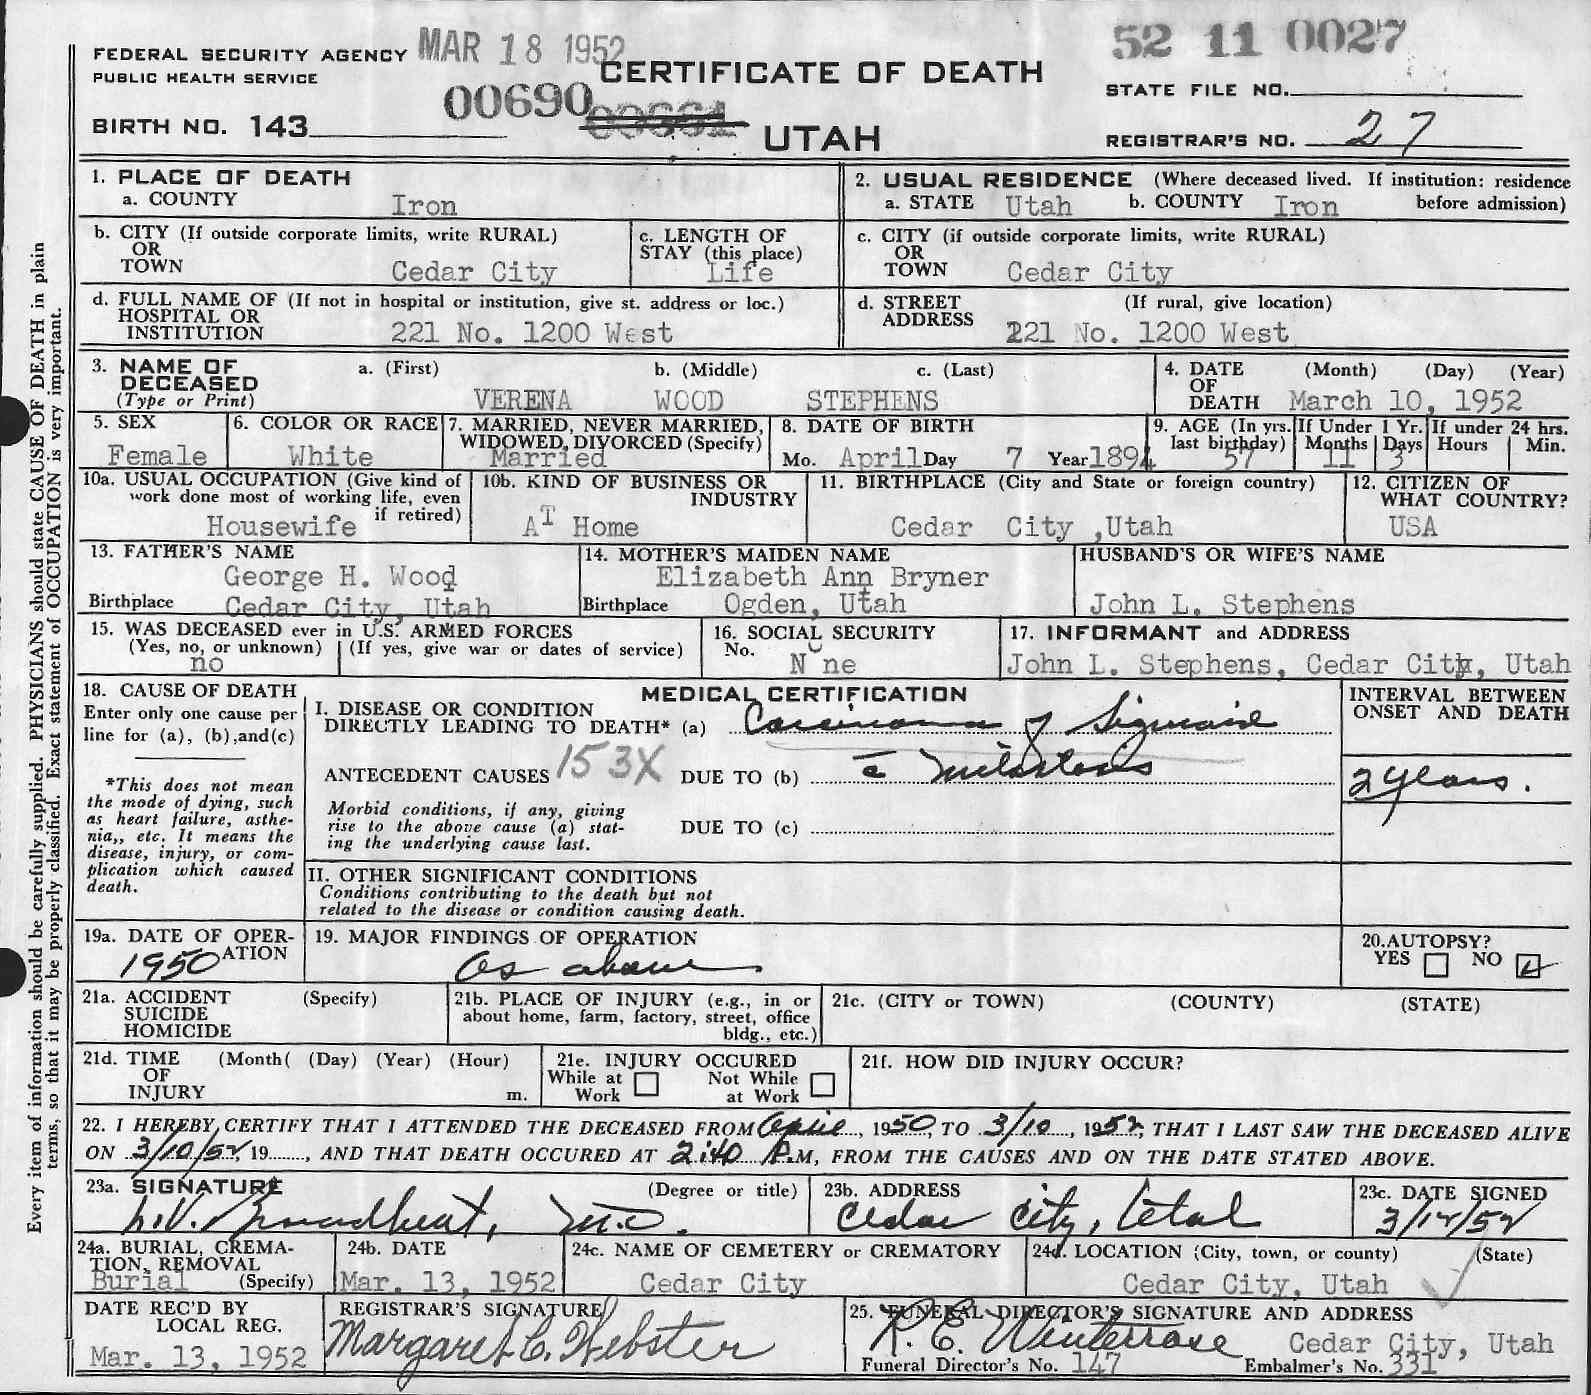 FEDERAL SECURITY AGENCY MAR 18 1952
52 11 0027
PUBLIC HEALTH SERVICE
CERTIFICATE OF DEATH
STATE FILE NO.
00690
BIRTH NO. 143
UTAH
REGISTRAR'S NO. 27
1. PLACE OF DEATH
a. COUNTY Iron
2. USUAL RESIDENCE (Where deceased lived. If institution: residence before admission)
a. STATE Utah b. COUNTY Iron
b. CITY (If outside corporate limits, write RURAL)
OR
TOWN Cedar City
c. LENGTH OF
STAY (this place)
Life
c. CITY (if outside corporate limits, write RURAL)
OR
TOWN Cedar City
d. FULL NAME OF (If not in hospital or institution, give st. address or loc.)
HOSPITAL OR
INSTITUTION 221 No. 1200 West
d. STREET (If rural, give location)
ADDRESS 221 No. 1200 West
3. NAME OF a. (First) b. (Middle) c. (Last)
DECEASED
(Type or Print) VERENA WOOD STEPHENS
4. DATE (Month) (Day) (Year)
OF
DEATH March 10, 1952
5. SEX
Female
6. COLOR OR RACE
White
7. MARRIED, NEVER MARRIED,
WIDOWED, DIVORCED (Specify)
Married
8. DATE OF BIRTH
Mo. April Day 7 Year 1894
9. AGE (In yrs. last birthday)
57
If Under 1 Yr.
Months Days
11 3
If under 24 hrs.
Hours Min.
10a. USUAL OCCUPATION (Give kind of
work done most of working life, even
if retired)
Housewife
10b. KIND OF BUSINESS OR
INDUSTRY
AT Home
11. BIRTHPLACE (City and State or foreign country)
Cedar City ,Utah
12. CITIZEN OF
WHAT COUNTRY?
USA
13. FATHER'S NAME
George H. Wood
Birthplace Cedar City, Utah
14. MOTHER'S MAIDEN NAME
Elizabeth Ann Bryner
Birthplace Ogden, Utah
HUSBAND'S OR WIFE'S NAME
John L. Stephens
15. WAS DECEASED ever in U.S. ARMED FORCES
(Yes, no, or unknown) (If yes, give war or dates of service)
no
16. SOCIAL SECURITY
No.
None
17. INFORMANT and ADDRESS
John L. Stephens, Cedar City, Utah
18. CAUSE OF DEATH
Enter only one cause per
line for (a), (b),and(c)
*This does not mean
the mode of dying, such
as heart failure, asthe-
nia,, etc. It means the
disease, injury, or com-
plication which caused
death.
MEDICAL CERTIFICATION
I. DISEASE OR CONDITION
DIRECTLY LEADING TO DEATH* (a) Carcinoma of Sigmoid
ANTECEDENT CAUSES 153X DUE TO (b) c̄ metastasis
Morbid conditions, if any, giving
rise to the above cause (a) stat-
ing the underlying cause last.
DUE TO (c)
INTERVAL BETWEEN
ONSET AND DEATH
2 years.
II. OTHER SIGNIFICANT CONDITIONS
Conditions contributing to the death but not
related to the disease or condition causing death.
19a. DATE OF OPER-
ATION
1950
19. MAJOR FINDINGS OF OPERATION
As above
20.AUTOPSY?
YES NO
21a. ACCIDENT (Specify)
SUICIDE
HOMICIDE
21b. PLACE OF INJURY (e.g., in or
about home, farm, factory, street, office
bldg., etc.)
21c. (CITY or TOWN) (COUNTY) (STATE)
21d. TIME (Month( (Day) (Year) (Hour)
OF
INJURY m.
21e. INJURY OCCURED
While at Work Not While at Work
21f. HOW DID INJURY OCCUR?
22. I HEREBY CERTIFY THAT I ATTENDED THE DECEASED FROM April, 1950, TO 3/10, 1952, THAT I LAST SAW THE DECEASED ALIVE
ON 3/10/52, 19......, AND THAT DEATH OCCURED AT 2:40 P.M, FROM THE CAUSES AND ON THE DATE STATED ABOVE.
23a. SIGNATURE (Degree or title)
Broadbent, M.D.
23b. ADDRESS
Cedar City, Utah
23c. DATE SIGNED
3/12/52
24a. BURIAL, CREMA-
TION, REMOVAL
Burial (Specify)
24b. DATE
Mar. 13, 1952
24c. NAME OF CEMETERY or CREMATORY
Cedar City
24d. LOCATION (City, town, or county) (State)
Cedar City, Utah
DATE REC'D BY
LOCAL REG.
Mar. 13, 1952
REGISTRAR'S SIGNATURE
Margaret C. Webster
25. FUNERAL DIRECTOR'S SIGNATURE AND ADDRESS
R. E. Winterrose Cedar City, Utah
Funeral Director's No. 147 Embalmer's No. 331
Every item of information should be carefully supplied. PHYSICIANS should state CAUSE OF DEATH in plain
terms, so that it may be properly classified. Exact statement of OCCUPATION is very important.